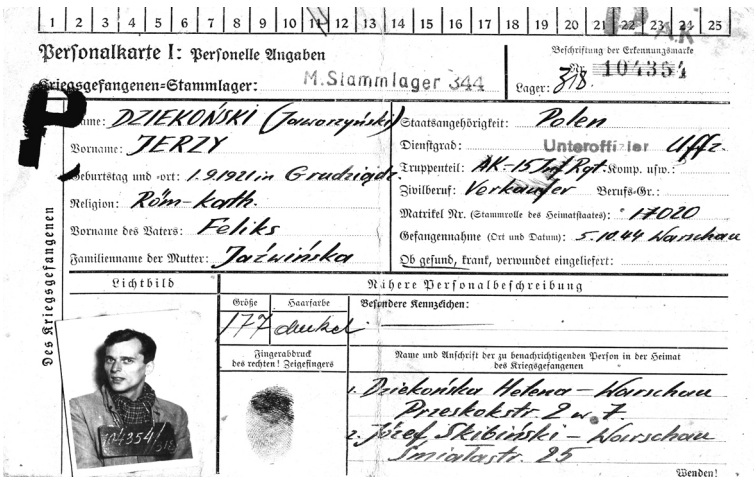 1 2 3 4 5 6 7 8 9 10 11 12 13 14 15 16 17 18 19 20 21 22 23 24 25
A.K
Personalkarte I: Personelle Angaben
Beschriftung der Erkennungsmarke
Nr. 104354
Kriegsgefangenen-Stammlager: M.Stammlager 344
Lager: 318.
P
Des Kriegsgefangenen
Name: DZIEKOŃSKI (Jaworzyński)
Vorname: JERZY
Geburtstag und -ort: 1.9.1921 in Grudziądz.
Religion: Röm-kath.
Vorname des Vaters: Feliks
Familienname der Mutter: Jaźwińska
Staatsangehörigkeit: Polen
Dienstgrad: Unteroffizier Uffz.
Truppenteil: AK-15 Inf Rgt. Komp. usw.:
Zivilberuf: Verkäufer Berufs-Gr.:
Matrikel Nr. (Stammrolle des Heimatstaates): 17020
Gefangennahme (Ort und Datum): 5.10.44 Warschau
Ob gesund, krank, verwundet eingeliefert:
Lichtbild
Nähere Personalbeschreibung
Größe
Haarfarbe
Besondere Kennzeichen:
177
dunkel
Fingerabdruck
des rechten! Zeigefingers
Name und Anschrift der zu benachrichtigenden Person in der Heimat
des Kriegsgefangenen
1. Dziekońska Helena - Warschau
Przeskokstr. 2 w. 7.
2. Józef Skibiński - Warschau
Smiałastr. 25
104354/318
Wenden!